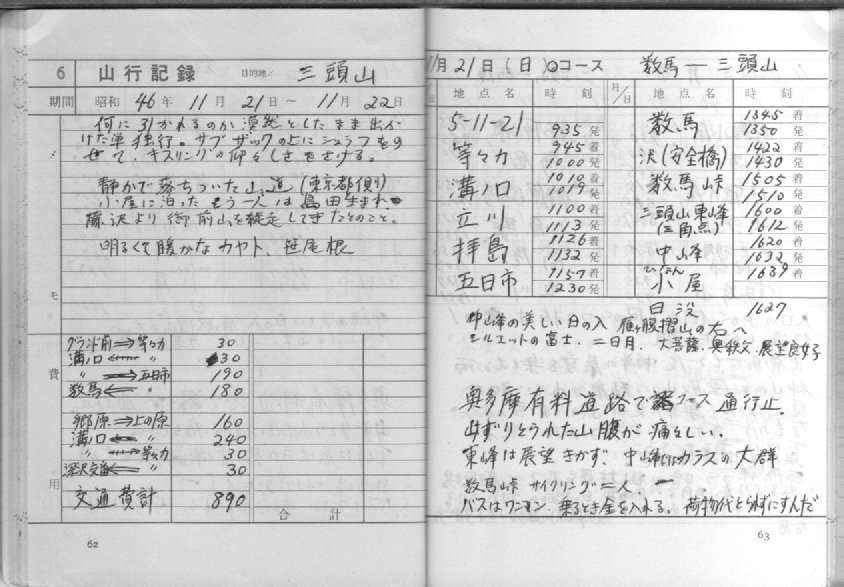 6 山行記録 目的地/ 三頭山
期間 昭和 46年 11月 21日 ～ 11月 22日
メモ
何に引かれるのか漠然としたまま出か
けた単独行。サブザックの上にシュラフをの
せて、キスリングの仰々しさを去する。
静かで落ちついた山道（東京都側）
小屋に泊ったもう一人は島田生まれ
藤沢より御前山を縦走してきたとのこと。
明るくて暖かなカヤト、笹尾根
費用
グランド前⇒等々力 30
溝ノ口 ← 〃 30
〃 ⇒五日市 190
数馬 ← 〃 180
郷原⇒上の原 160
溝ノ口 ← 〃 240
〃 → 等々力 30
深沢交番 ← 〃 30
交通費計 890
合計
62
11月21日（日）コース 数馬 — 三頭山
地点名 時刻 月/日 地点名 時刻
5-11-21 935発 数馬 1345着 1350発
等々力 945着 1000発 沢（安全橋） 1422着 1430発
溝ノ口 1010着 1019発 数馬峠 1505着 1510発
立川 1100着 1113発 三頭山東峰（三角点） 1600着 1612発
拝島 1126着 1132発 中山峰 1620着 1632発
五日市 1157着 1230発 小屋 1639着
日没 1627
中山峰の美しい日の入 雁ヶ腹摺山の右へ
シルエットの富士、二日月、大菩薩、奥秩父、展望良好
奥多摩有料道路で コース通行止、
山ずりとられた山腹が痛々しい。
東峰は展望きかず、中山峰にはカラスの大群
数馬峠 サイクリング二人、
バスはワンマン、乗るとき金を入れる。荷物代とられずにすんだ
63